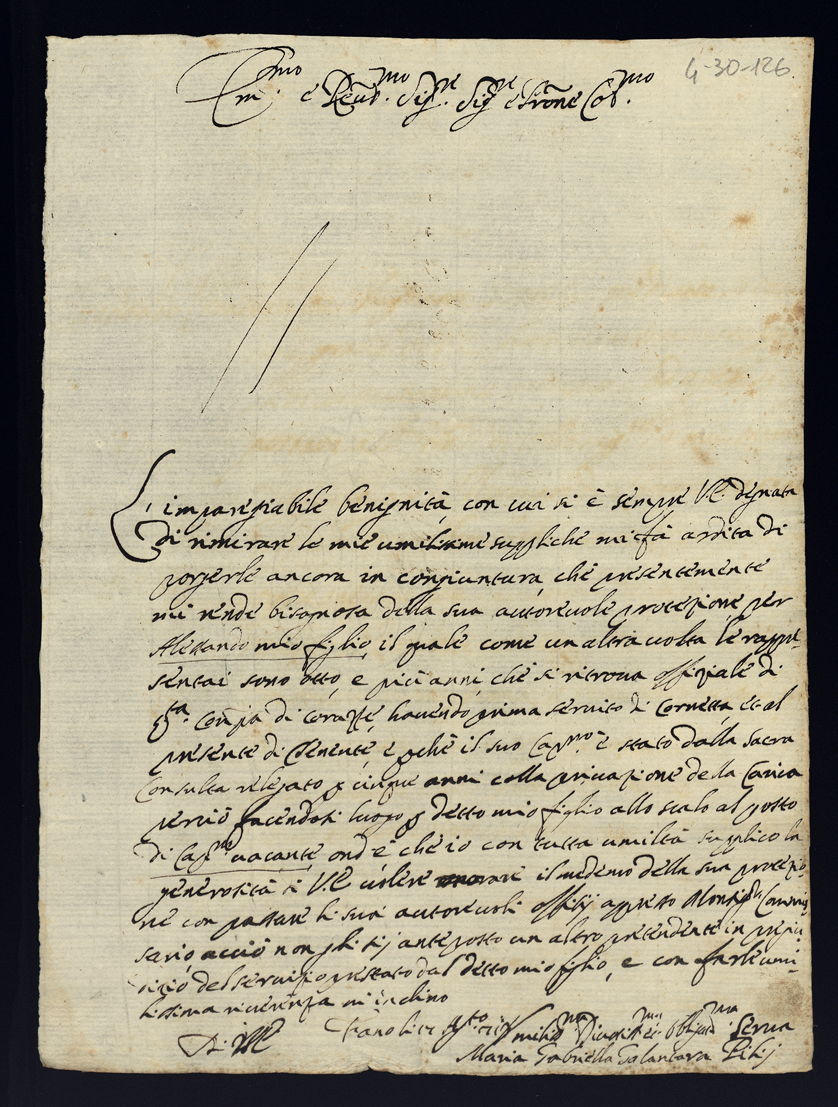 4-30-126
Em.mo e Reud.mo Sig.re Sig.re e Prone Col.mo
L'impareggiabile benignità, con cui si è sempre V.E. degnata
di rimirare le mie umilissime suppliche mi fà ardita di
porgerle ancora in congiuntura, che presentemente
mi rende bisognosa della sua autoreuole protezione per
Alessandro mio figlio, il quale come un altra uolta le rappre-
sentai sono otto, e più anni, che si ritroua offiziale di
q.ta Comp.a di corazze, hauendo prima seruito di Cornetta, et al
presente di Tenente, e perche il suo Cap.no è stato dalla Sacra
Consulta relegato p cinque anni colla priuazione della Carica
perciò facendosi luogo p detto mio figlio allo scalo al posto
di Cap.no uacante, ond'è che io con tutta umiltà supplico la
generosità di V.E. uolere il medemo della sua protezio
ne con passare li suoi autoreuoli offizij appresso Monsig.r Commis
sario, acciò non gli sij anteposto un altro pretendente in pregiu
dizio del seruizio prestato dal detto mio figlio, e con farle umi-
lissima riuerenza mi inchino
Di V.E. Fano li Ag.to Umilis.ma Diuotis.ma Obligat.ma Serua
Maria Gabriella Galantara Pilij